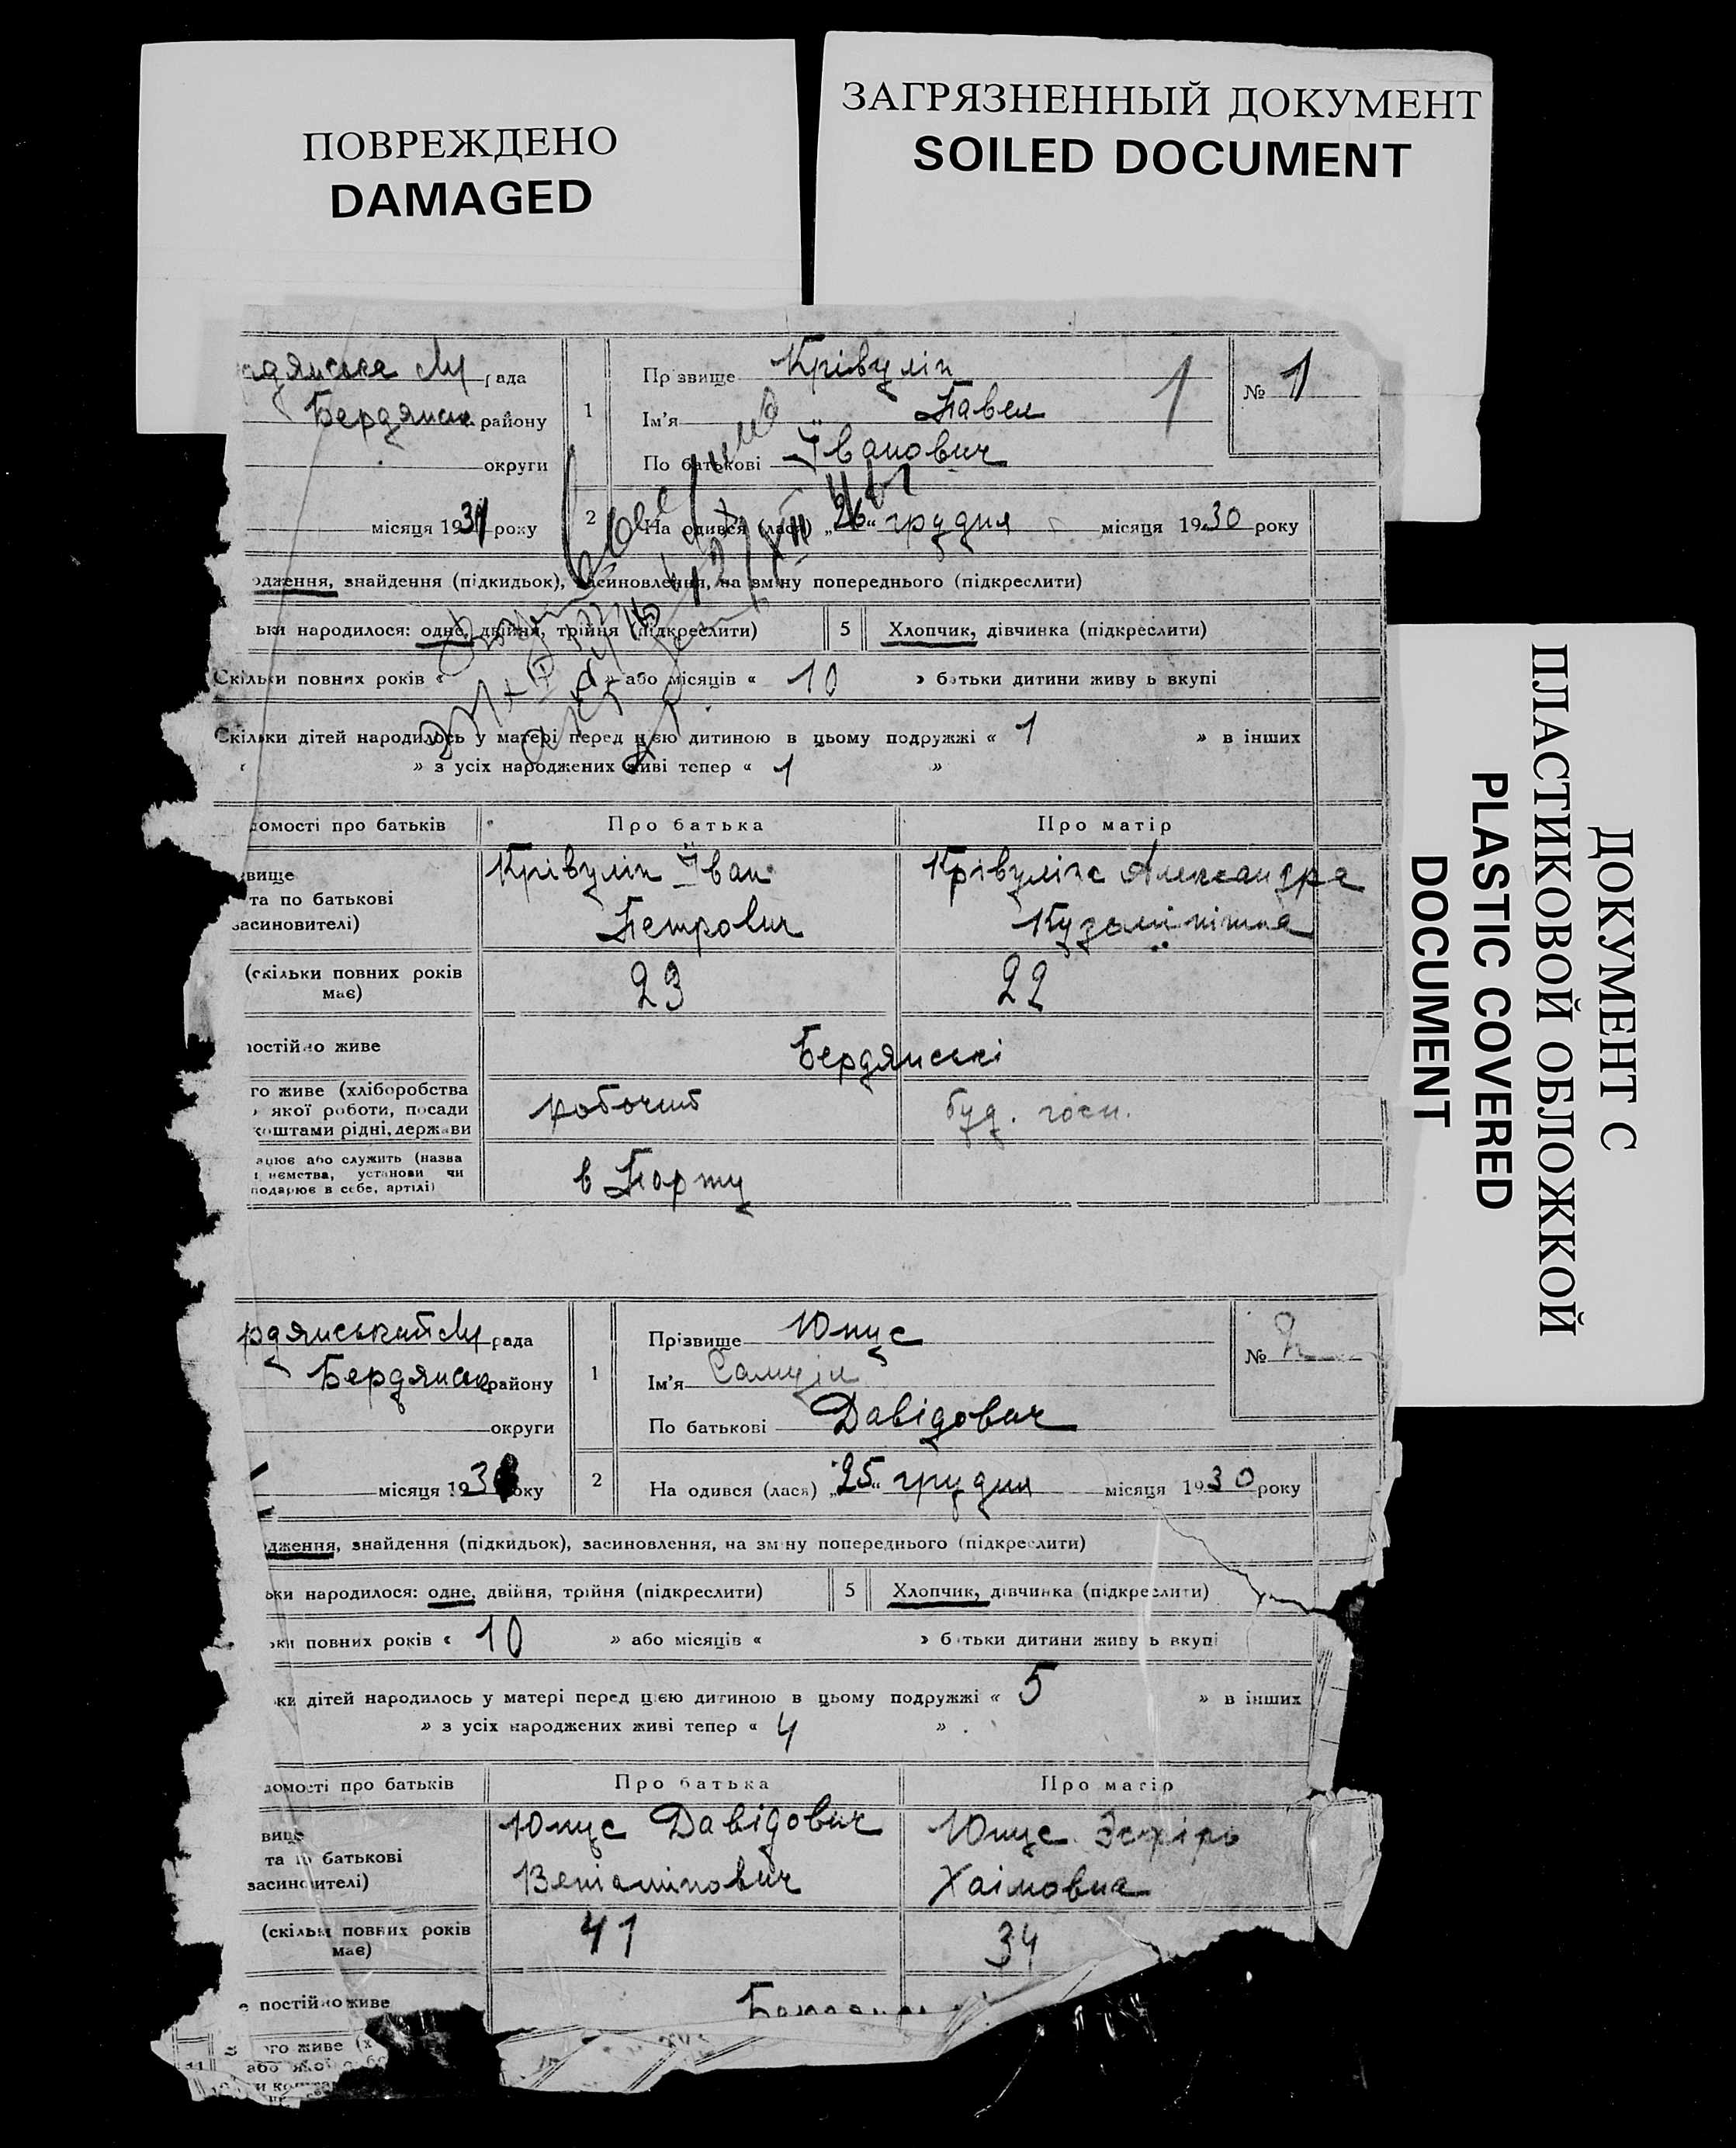 ПОВРЕЖДЕНО
DAMAGED
ЗАГРЯЗНЕННЫЙ ДОКУМЕНТ
SOILED DOCUMENT
ДОКУМЕНТ С
ПЛАСТИКОВОЙ ОБЛОЖКОЙ
PLASTIC COVERED
DOCUMENT
рдянська М рада
Бердянськ району
округи
місяця 1931 року
1
Прізвище Крівулін
Ім'я Павел
По батькові Іванович
1
№ 1
2
На одився (лася) „26“ грудня місяця 1930 року
одження, знайдення (підкидьок), засиновлення, на зміну попереднього (підкреслити)
ьки народилося: одне, двійня, трійня (підкреслити) 5 Хлопчик, дівчинка (підкреслити)
Скільки повних років « » або місяців « 10 » батьки дитини живу ь вкупі
Скільки дітей народилось у матері перед цією дитиною в цьому подружжі « 1 » в інших
» з усіх народжених живі тепер « 1 »
домості про батьків Про батька Про матір
звище
та по батькові
засиновителі)
Крівулін Іван
Петрович
Крівуліна Александра
Кузьмінішна
(скільки повних років
має)
23 22
постійно живе Бердянські
го живе (хліборобства
якої роботи, посади
коштами рідні, держави
робочий
буд. госп.
ацює або служить (назва
ємства, установи чи
подарює в себе, артілі)
в Порту
рдянськай М рада
Бердянськ району
округи
місяця 193 року
1
Прізвище Юнус
Ім'я Самуіл
По батькові Давідович
№ 2
2
На одився (лася) „25“ грудня місяця 1930 року
одження, знайдення (підкидьок), засиновлення, на зм ну попереднього (підкреслити)
ьки народилося: одне, двійня, трійня (підкреслити) 5 Хлопчик, дівчинка (підкреслити)
ьки повних років « 10 » або місяців « » батьки дитини живу ь вкупі
ки дітей народилось у матері перед цією дитиною в цьому подружжі « 5 » в інших
» з усіх народжених живі тепер « 4 »
домості про батьків Про батька Про матір
вище
та по батькові
засиновителі)
Юнус Давідович
Веніамінович
Юнус Эсфірь
Хаімовна
(скільки повних років
має)
41 34
е постійно живе
го живе (х
або якої робо
и кошта